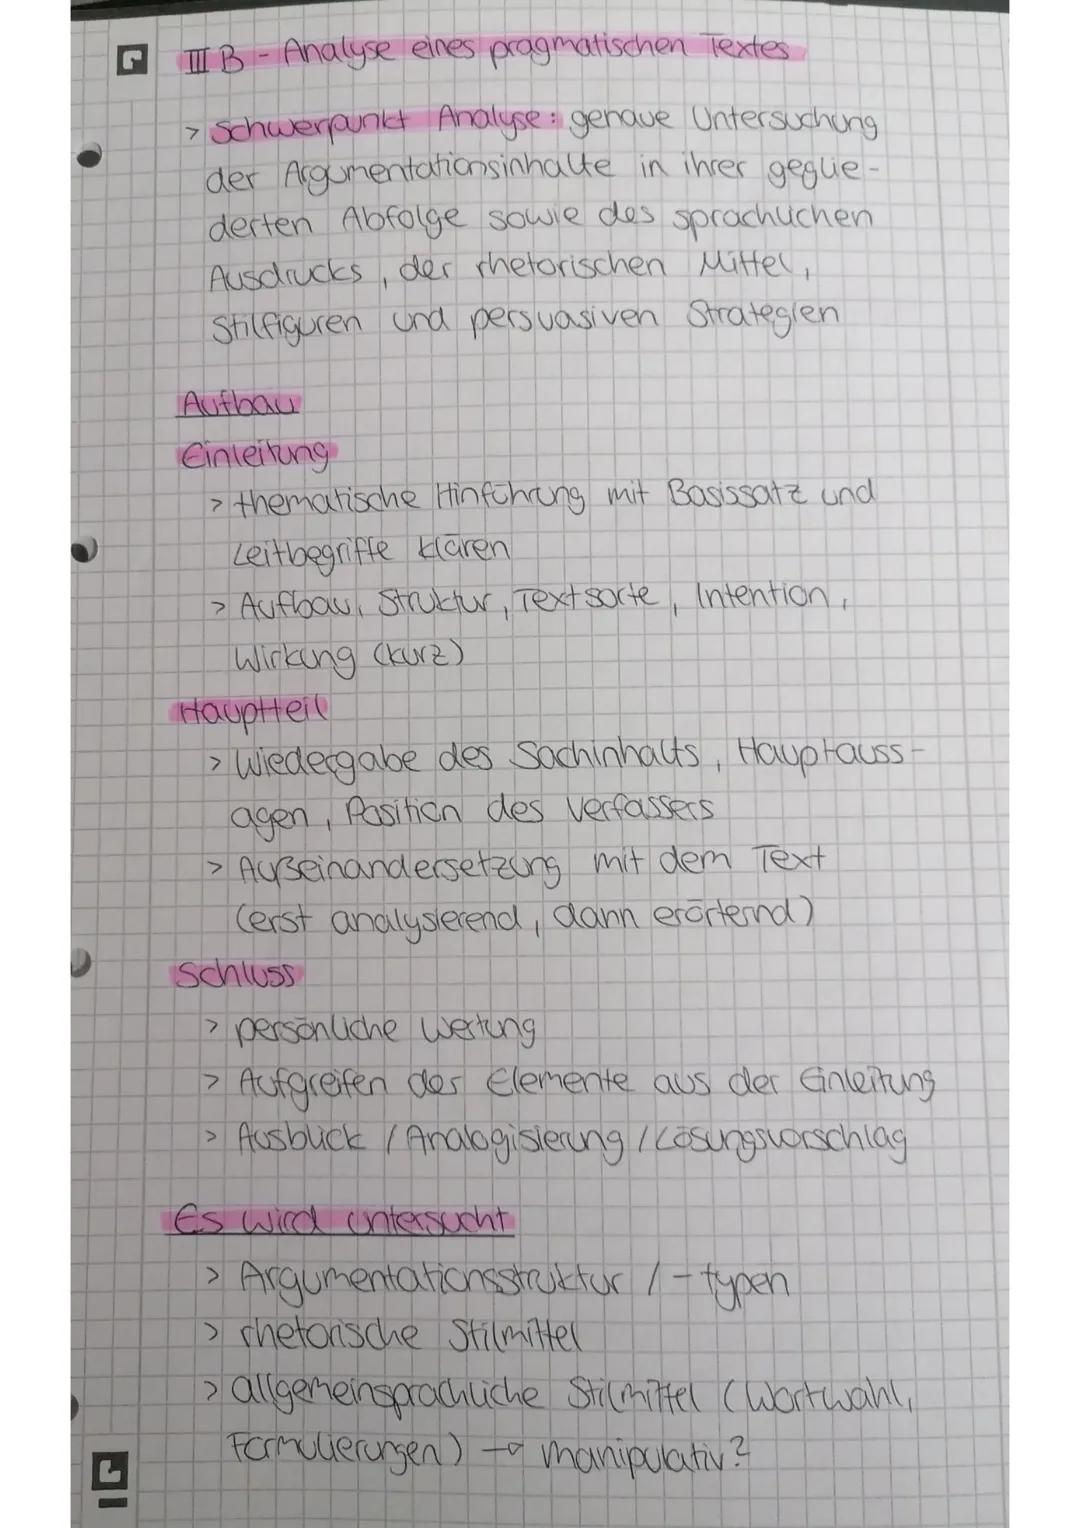 III B - Analyse eines pragmatischen Textes
> Schwerpunkt Analyse: genaue Untersuchung
der Argumentationsinhalte in ihrer geglie-
derten Abfolge sowie des sprachlichen
Ausdrucks, der rhetorischen Mittel,
Stilfiguren und persuasiven Strategien
Aufbau
Einleitung
> thematische Hinführung mit Basissatz und
Leitbegriffe klären
> Aufbau, Struktur, Textsorte, Intention,
Wirkung (kurz)
Hauptteil
> Wiedergabe des Sachinhalts, Hauptauss-
agen, Position des Verfassers
> Außeinandersetzung mit dem Text
(erst analysierend, dann erörternd)
Schluss
> persönliche Wertung
> Aufgreifen der Elemente aus der Einleitung
> Ausblick / Analogisierung / Lösungsvorschlag
Es wird untersucht
> Argumentationsstruktur / -typen
> rhetorische Stilmittel
> allgemeinsprachliche Stilmittel (Wortwahl,
Formulierungen) → manipulativ?